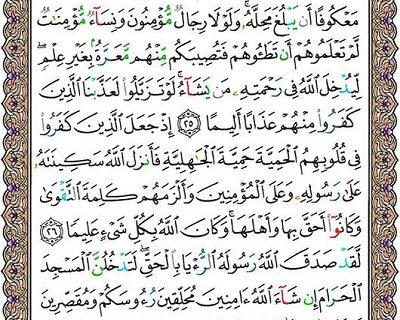 مَعْكُوفًا أَن يَبْلُغَ مَحِلَّهُۥ ۚ وَلَوْلَا رِجَالٌ مُّؤْمِنُونَ وَنِسَآءٌ مُّؤْمِنَٰتٌ
لَّمْ تَعْلَمُوهُمْ أَن تَطَـُٔوهُمْ فَتُصِيبَكُم مِّنْهُم مَّعَرَّةٌۢ بِغَيْرِ عِلْمٍ ۖ
لِّيُدْخِلَ ٱللَّهُ فِى رَحْمَتِهِۦ مَن يَشَآءُ ۚ لَوْ تَزَيَّلُوا۟ لَعَذَّبْنَا ٱلَّذِينَ
كَفَرُوا۟ مِنْهُمْ عَذَابًا أَلِيمًا ٢٥ إِذْ جَعَلَ ٱلَّذِينَ كَفَرُوا۟
فِى قُلُوبِهِمُ ٱلْحَمِيَّةَ حَمِيَّةَ ٱلْجَٰهِلِيَّةِ فَأَنزَلَ ٱللَّهُ سَكِينَتَهُۥ
عَلَىٰ رَسُولِهِۦ وَعَلَى ٱلْمُؤْمِنِينَ وَأَلْزَمَهُمْ كَلِمَةَ ٱلتَّقْوَىٰ
وَكَانُوٓا۟ أَحَقَّ بِهَا وَأَهْلَهَا ۚ وَكَانَ ٱللَّهُ بِكُلِّ شَىْءٍ عَلِيمًا ٢٦
لَّقَدْ صَدَقَ ٱللَّهُ رَسُولَهُ ٱلرُّءْيَا بِٱلْحَقِّ ۖ لَتَدْخُلُنَّ ٱلْمَسْجِدَ
ٱلْحَرَامَ إِن شَآءَ ٱللَّهُ ءَامِنِينَ مُحَلِّقِينَ رُءُوسَكُمْ وَمُقَصِّرِينَ